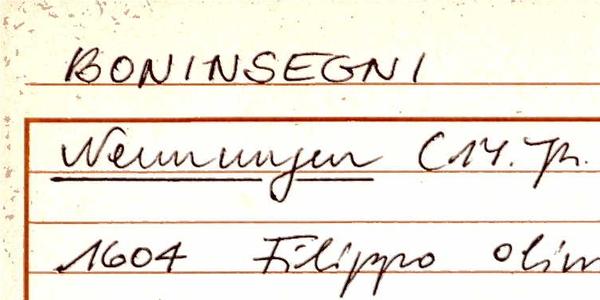 BONINSEGNI
Nennungen (14. Jh.
1604 Filippo olim